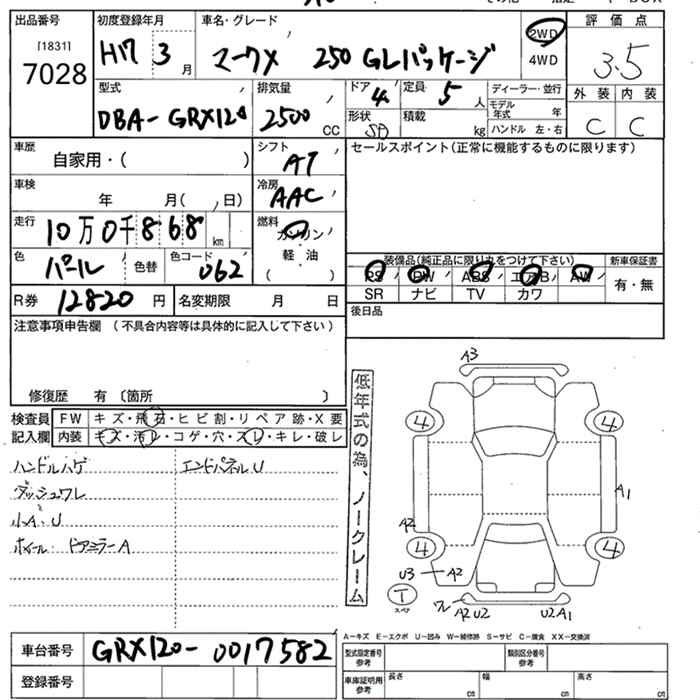 出品番号 初度登録年月 車名・グレード 2WD 評価点
[1831]
7028 H17 3月 マークX 250 GLパッケージ 4WD 3.5
型式 排気量 ドア 4 定員 5人 ディーラー・並行 外装 内装
DBA-GRX120 2500CC 形状 SD 積載 kg モデル年式 年 C C
ハンドル 左・右
車歴 自家用・( ) シフト AT セールスポイント(正常に機能するものに限ります)
車検 年 月( , 日) 冷房 AAC
走行 10万0千868km 燃料 ガソリン
軽油
( )
色 パール 色替 色コード 062 装備品(純正品に限り丸をつけて下さい) 新車保証書
PS PW ABS エアB AW 有・無
SR ナビ TV カワ
R券 12820円 名変期限 月 日 後日品
注意事項申告欄 (不具合内容等は具体的に記入して下さい)
修復歴 有 〔箇所 〕
検査員 FW キズ・飛石・ヒビ割・リペア跡・X要
記入欄 内装 キズ・汚レ・コゲ・穴・スレ・キレ・破レ
ハンドルハゲ エンドパネルU
ダッシュワレ
小A、U
ホイール・ドアミラーA
低年式の為、ノークレーム
A3
4 4
A1
A2
4 4
U3 A2
T
スペア
ワレ A2 U2 U2 A1
A-キズ E-エクボ U-凹み W-補修跡 S-サビ C-腐食 XX-交換済
車台番号 GRX120-0017582 型式指定番号 参考 類別区分番号 参考
登録番号 車庫証明用 参考 長さ cm 幅 cm 高さ cm